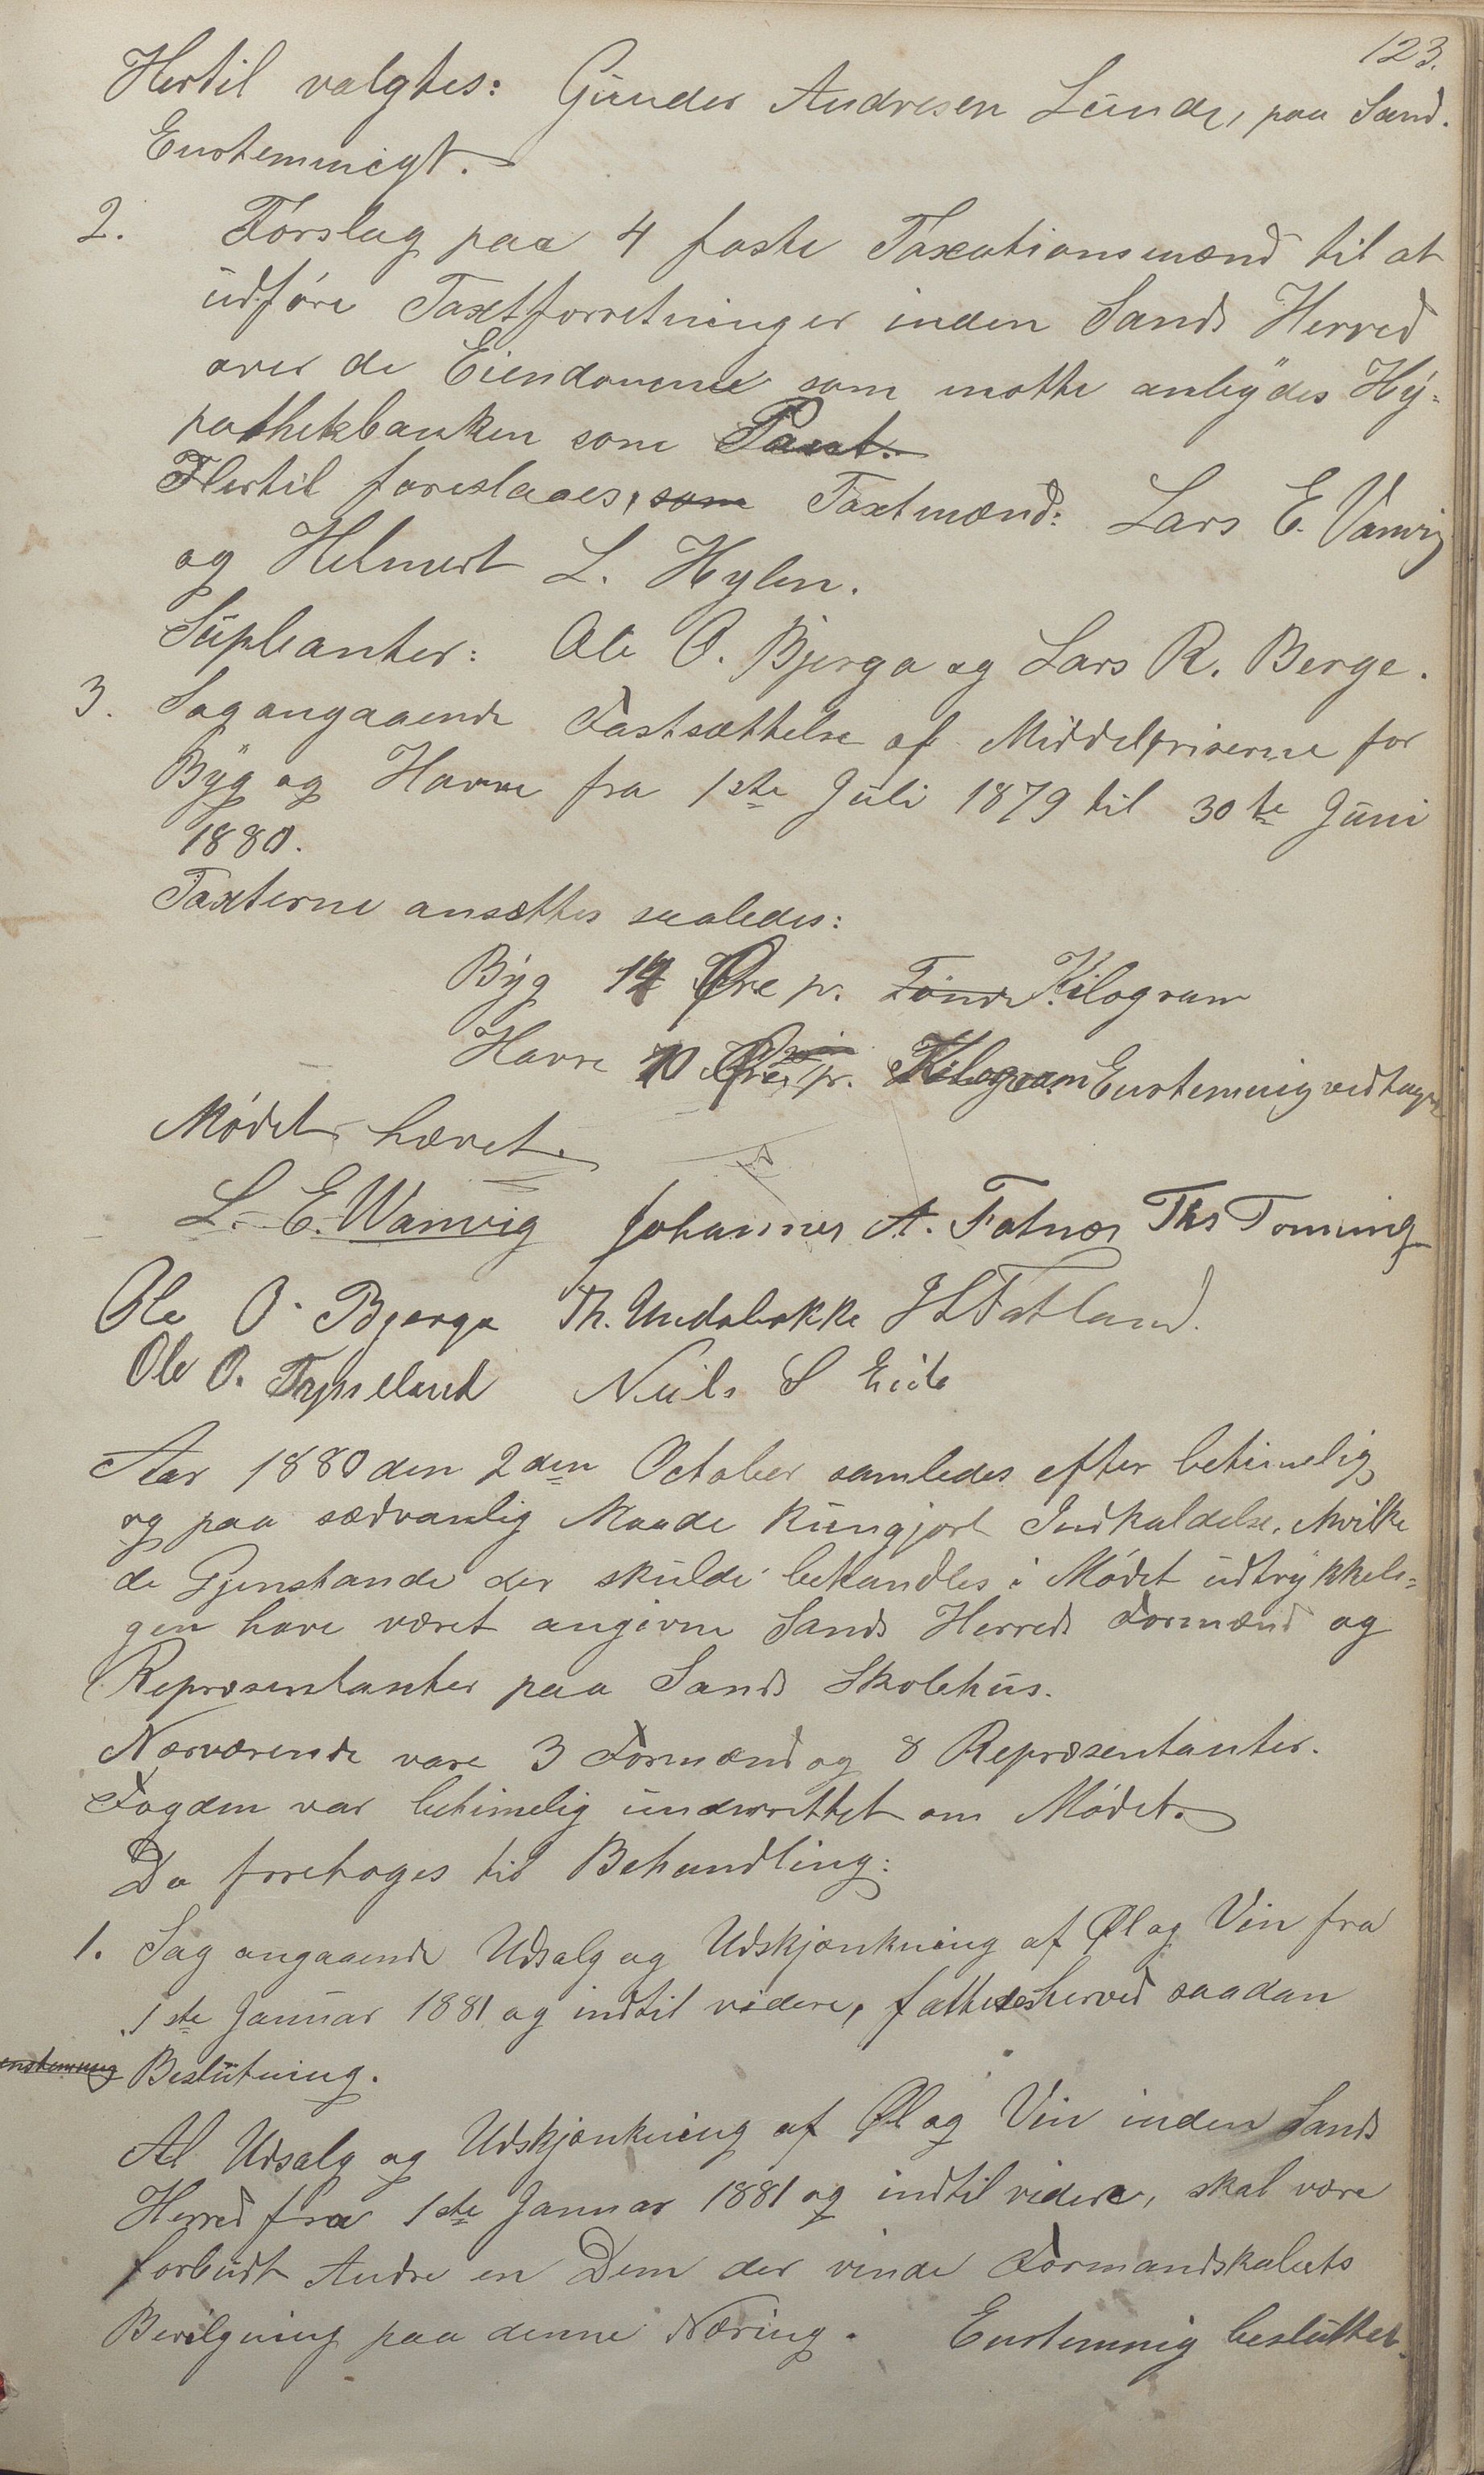 123.
Hertil valgtes: Gunder Andresen Lunde, paa Sand.
Enstemmigt.
2. Forslag paa 4 faste Taxationsmænd til at
udføre Taxtforretninger inden Sands Herred
over de Eiendomme som motte anbydes Hy-
pothekbanken som Pant.
Hertil foreslaaes, som Taxtmænd: Lars E. Vanvig
og Helmert L. Hylen.
Supleanter: Ole O. Bjerga og Lars R. Berge.
3. Sag angaaende Fastsættelse af Middelpriserne for
Byg og Havre fra 1ste Juli 1879 til 30te Juni
1880.
Taxterne ansættes saaledes:
Byg 12 Øre pr. Tønde Kilogram
Havre 10 Øre pr. Kilogram Enstemmig vedtaget
Mødet hævet.
L. E. Wanvig Johannes A. Fatnes Ths Tonning
Ole O. Bjerga Th. Undabakke J L Fatland.
Ole O. Tysseland Niels S Eide
Aar 1880 den 2den October samledes efter betimelig
og paa sædvanlig Maade kungjort Indkaldelse, hvilke
de Gjenstande der skulde behandles i Mødet udtrykkeli-
gen have været angivne Sands Herreds Formænd og
Repræsentanter paa Sands Skolehus.
Nærværende vare 3 Formænd og 8 Repræsentanter.
Fogden var betimelig underrettet om Mødet.
Da foretoges til Behandling:
1. Sag angaaende Udsalg og Udskjænkning af Øl og Vin fra
1ste Januar 1881 og indtil videre, fattedes herved saadan
enstemmig Beslutning.
Al Udsalg og Udskjænkning af Øl og Vin inden Sands
Herred fra 1ste Januar 1881 og indtil videre, skal være
forbudt Andre en Dem der vinde Formandskabets
Bevilgning paa denne Næring. Enstemmig besluttet.